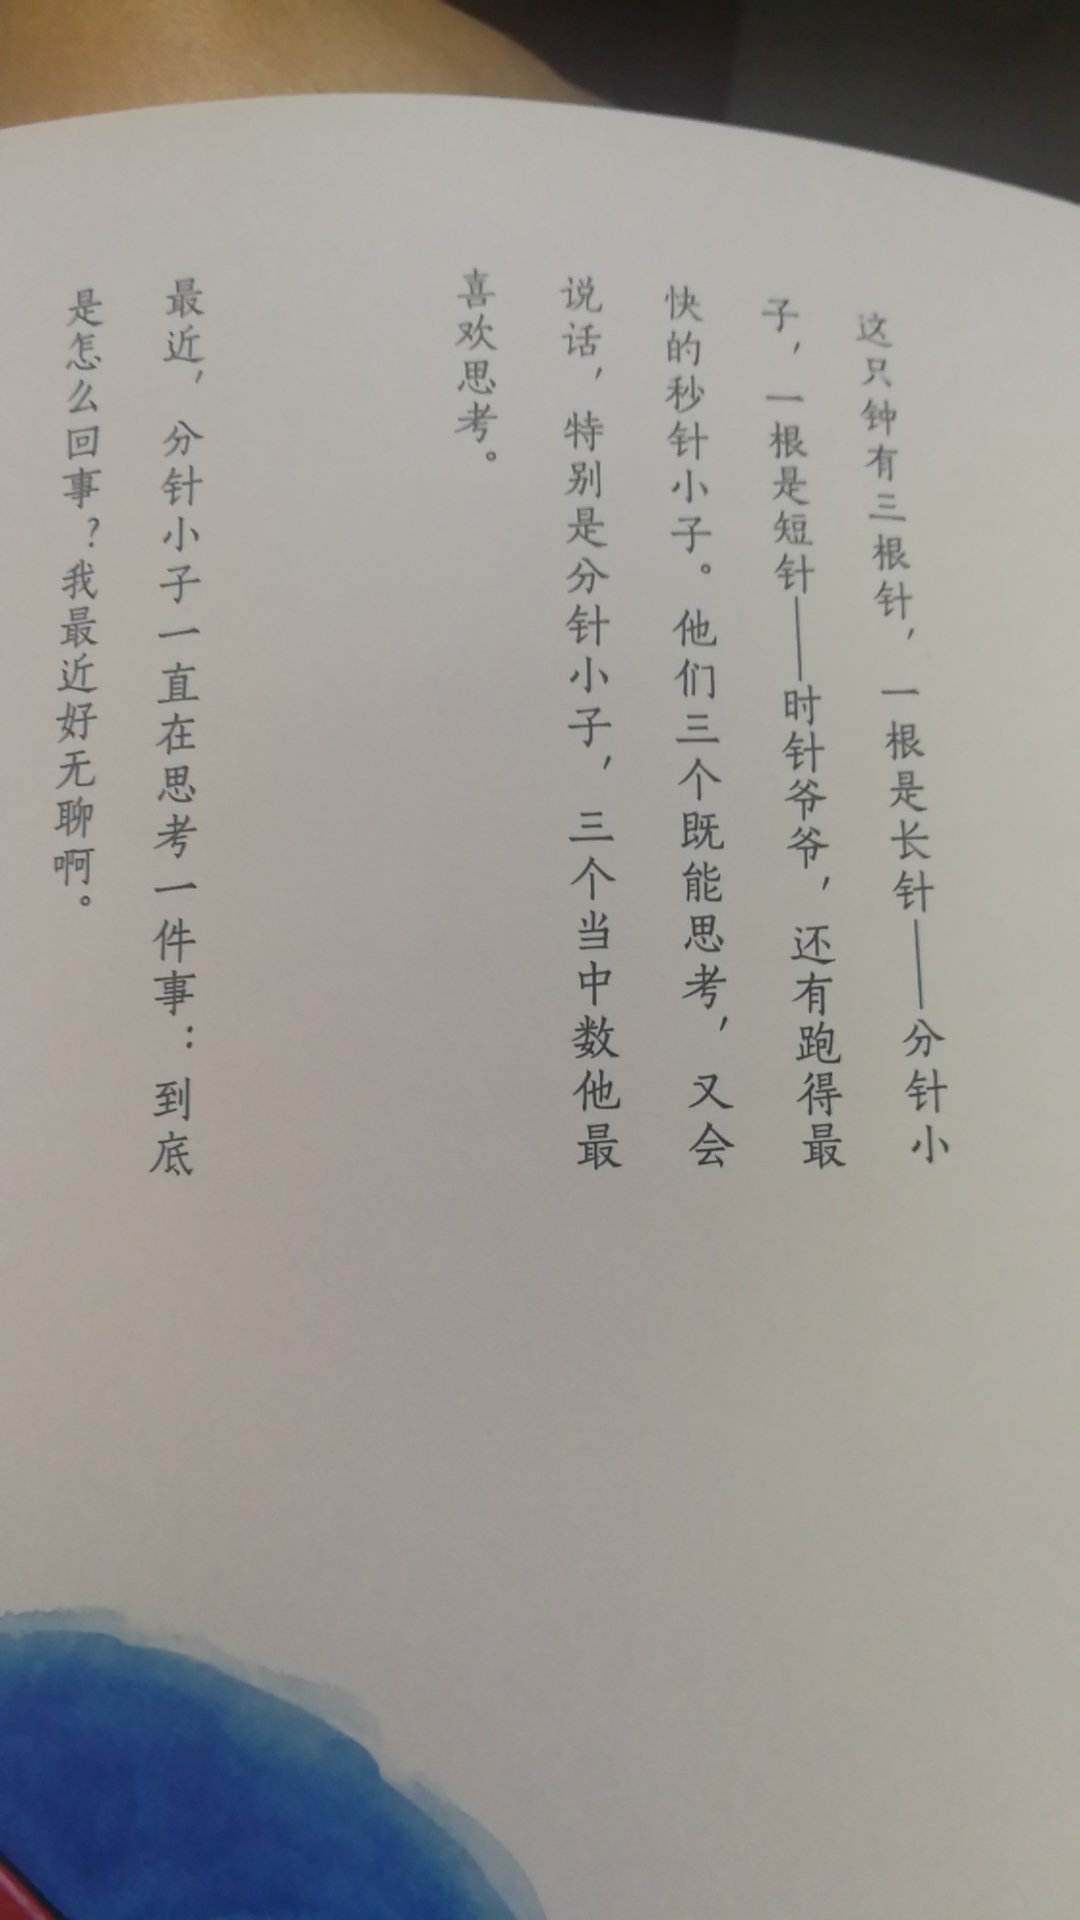 这只钟有三根针，一根是长针——分针小
子，一根是短针——时针爷爷，还有跑得最
快的秒针小子。他们三个既能思考，又会
说话，特别是分针小子，三个当中数他最
喜欢思考。
最近，分针小子一直在思考一件事：到底
是怎么回事？我最近好无聊啊。